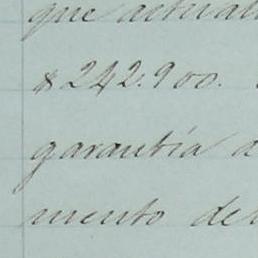 que actual
$242.900.
garantía a
mento de